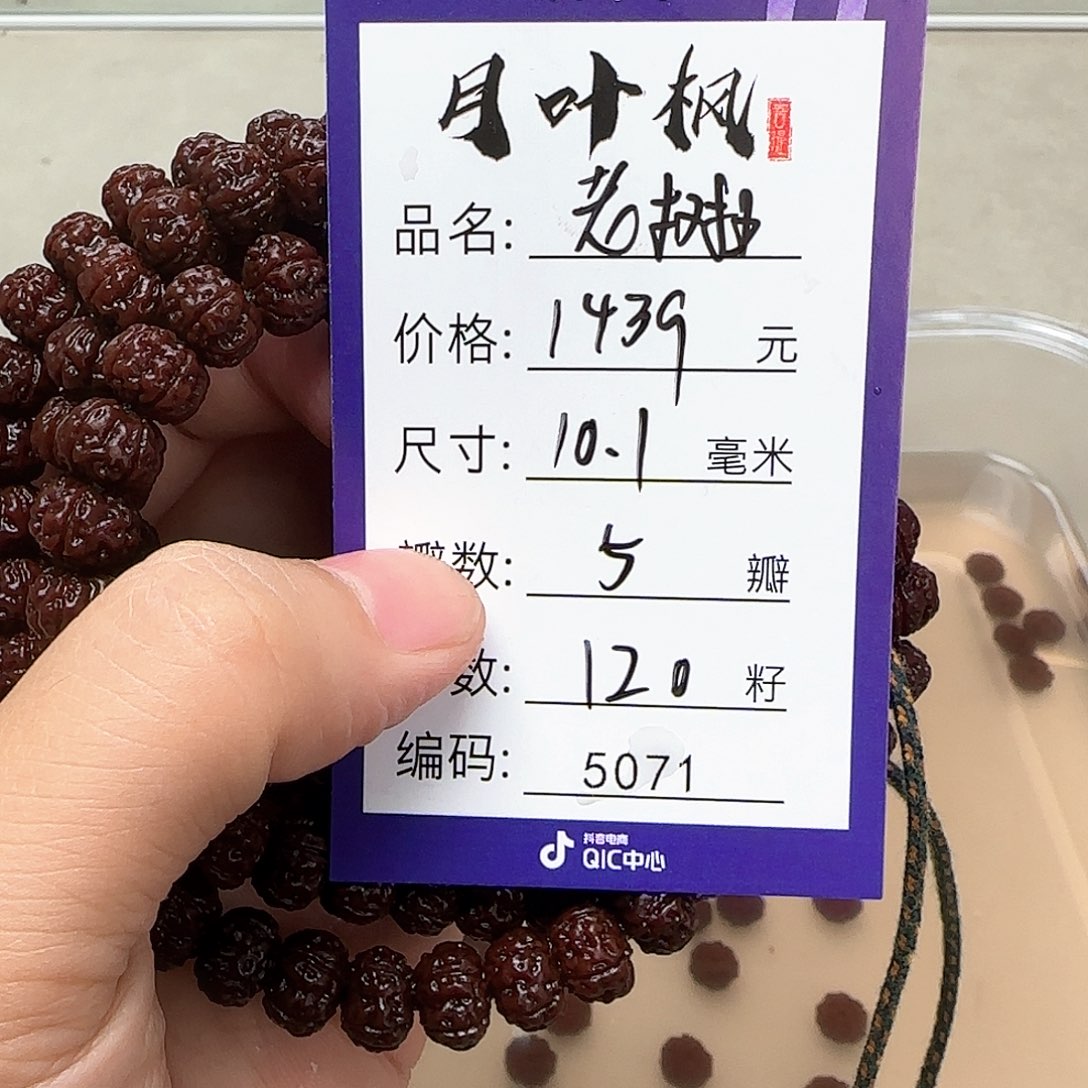 月叶枫 菩提
品名: 老树桩
价格: 1439 元
尺寸: 10.1 毫米
瓣数: 5 瓣
数: 120 籽
编码: 5071
抖音电商
QIC中心